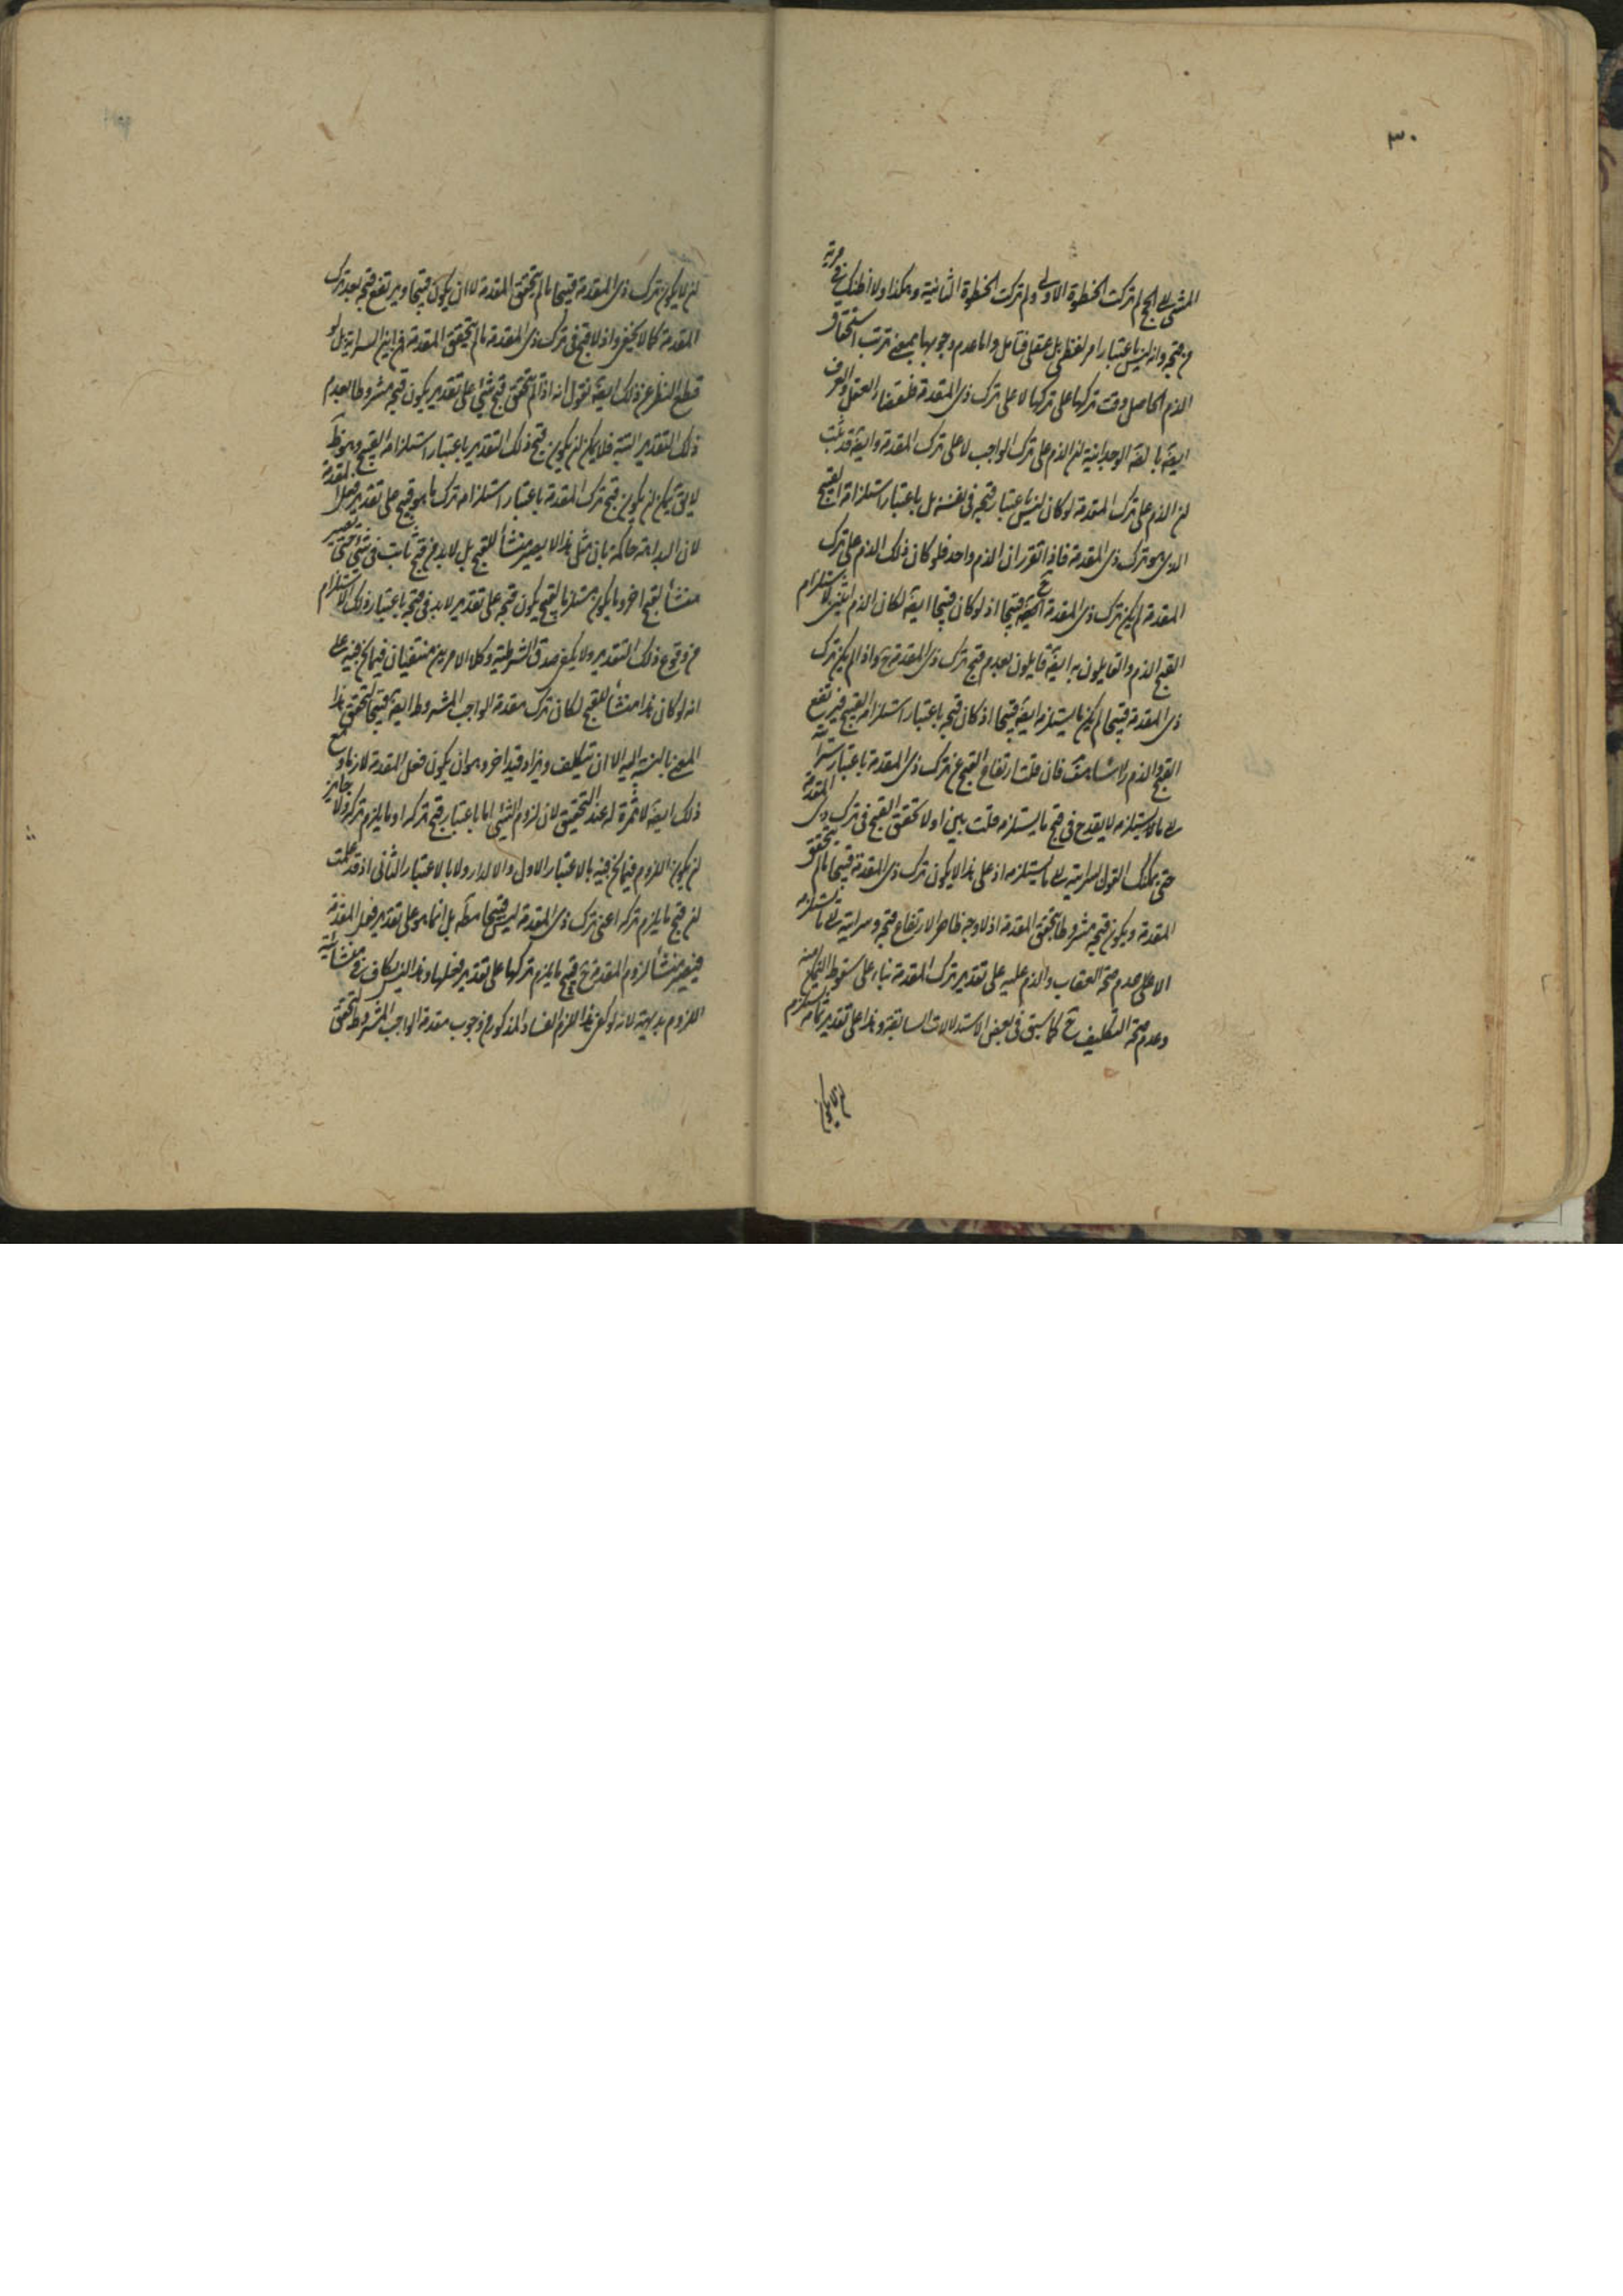 ٣٠
المشي الى الحج لم تركت الخطوة الاولى ولم تركت الخطوة الثانية وهكذا ولا اظنك في مرية
من قبحه وانه ليس باعتبار امر لفظي بل عقلي فتامل واما عدم وجوبها بمعنى ترتب استحقاق
الذم الحاصل وقت تركها على تركها لا على ترك ذي المقدمة فلقضاء العقل والعرف
ايضا بالوجدانية ان الذم على ترك الواجب لا على ترك المقدمة وايضا قد ثبت
ان الذم على ترك المقدمة لو كان ليس باعتبار قبحه في نفسه بل باعتبار استلزامه القبيح
الذي هو ترك ذي المقدمة فاذا تقرر ان الذم واحد فلو كان ذلك الذم على ترك
المقدمة لم يكن ترك ذي المقدمة قبيحا اذ لو كان قبيحا ايضا لكان الذم اثنين لاستلزام
القبح الذم والقايلون به ايضا قايلون بعدم قبح ترك ذي المقدمة ح واذا لم يكن ترك
ذي المقدمة قبيحا لم يكن ما يستلزمه ايضا قبيحا اذ كان قبحه باعتبار استلزامه القبيح فيرتفع
القبح والذم راسا هف فان قلت ارتفاع القبح عن ترك ذي المقدمة باعتبار سرايته
الى ما يستلزمه لا يقدح في قبح ما يستلزمه قلت بين اولا تحقق القبح في ترك ذي المقدمة
حتى يمكنك القول بسرايته الى ما يستلزمه اذ على هذا لا يكون ترك ذي المقدمة قبيحا ما لم يتحقق
المقدمة ويكون قبحه مشروطا بتحقق المقدمة اذ لا وجه ظاهرا لارتفاع قبحه وسرايته الى ما يستلزمه
الا على عدم صحة العقاب والذم عليه على تقدير ترك المقدمة بناء على سقوط التكليف منه
وعدم صحة التكليف ح كما سبق في بعض الاستدلالات السابقة وهذا على تقدير تمامه يستلزم
ان لا يكون
ان لا يكون ترك ذي المقدمة قبيحا ما لم يتحقق المقدمة لا ان يكون قبيحا ويرتفع قبحه بعد ترك
المقدمة كما لا يخفى واذ لا قبح في ترك ذي المقدمة ما لم يتحقق المقدمة فمن اين السراية بل لو
قطع النظر عن ذلك ايضا نقول انه اذا لم يتحقق قبح شيء على تقدير يكون قبحه مشروطا بعدم
ذلك التقدير البتة فلا يمكن ان يكون قبح ذلك التقدير باعتبار استلزامه القبيح وهو ظ
لا يق يمكن ان يكون قبح ترك المقدمة باعتبار استلزامه ترك ما هو قبيح على تقدير فعل المقدمة
لان البداهة حاكمة بان مثل هذا لا يصير منشأ للقبح بل لا بد من قبح ثابت في شيء حتى يصير
منشأ لقبح اخر وما يكون مستلزما لقبيح يكون قبحه على تقدير لا بد في قبحه باعتبار ذلك الاستلزام
من وقوع ذلك التقدير ولا يكفي صدق الشرطية وكلا الامرين منتفيان فيما نحن فيه على
انه لو كان هذا منشأ للقبح لكان ترك مقدمة الواجب المشروط ايضا قبيحا لتحقق هذا
المعنى بالنسبة اليه الا ان يتكلف ويزاد قيد اخر وهو ان يكون فعل المقدمة لازما ومع
ذلك ايضا لا ثمرة له عند التحقيق لان لزوم الشيء اما باعتبار قبح تركه او ما يلزم تركه ولا جايز
ان يكون اللزوم فيما نحن فيه بالاعتبار الاول والا لدار ولا بالاعتبار الثاني اذ قد علمت
ان قبح ما يلزم تركه اعني ترك ذي المقدمة ليس قبيحا مطلقا بل انما هو على تقدير فعل المقدمة
فيصير منشأ لزوم المقدمة ح قبح ما يلزم تركها على تقدير فعلها وهذا ليس بكاف في منشأية
اللزوم بديهة لانه لو كفى هذا للزم الفساد المذكور من وجوب مقدمة الواجب المشروط لتحقق